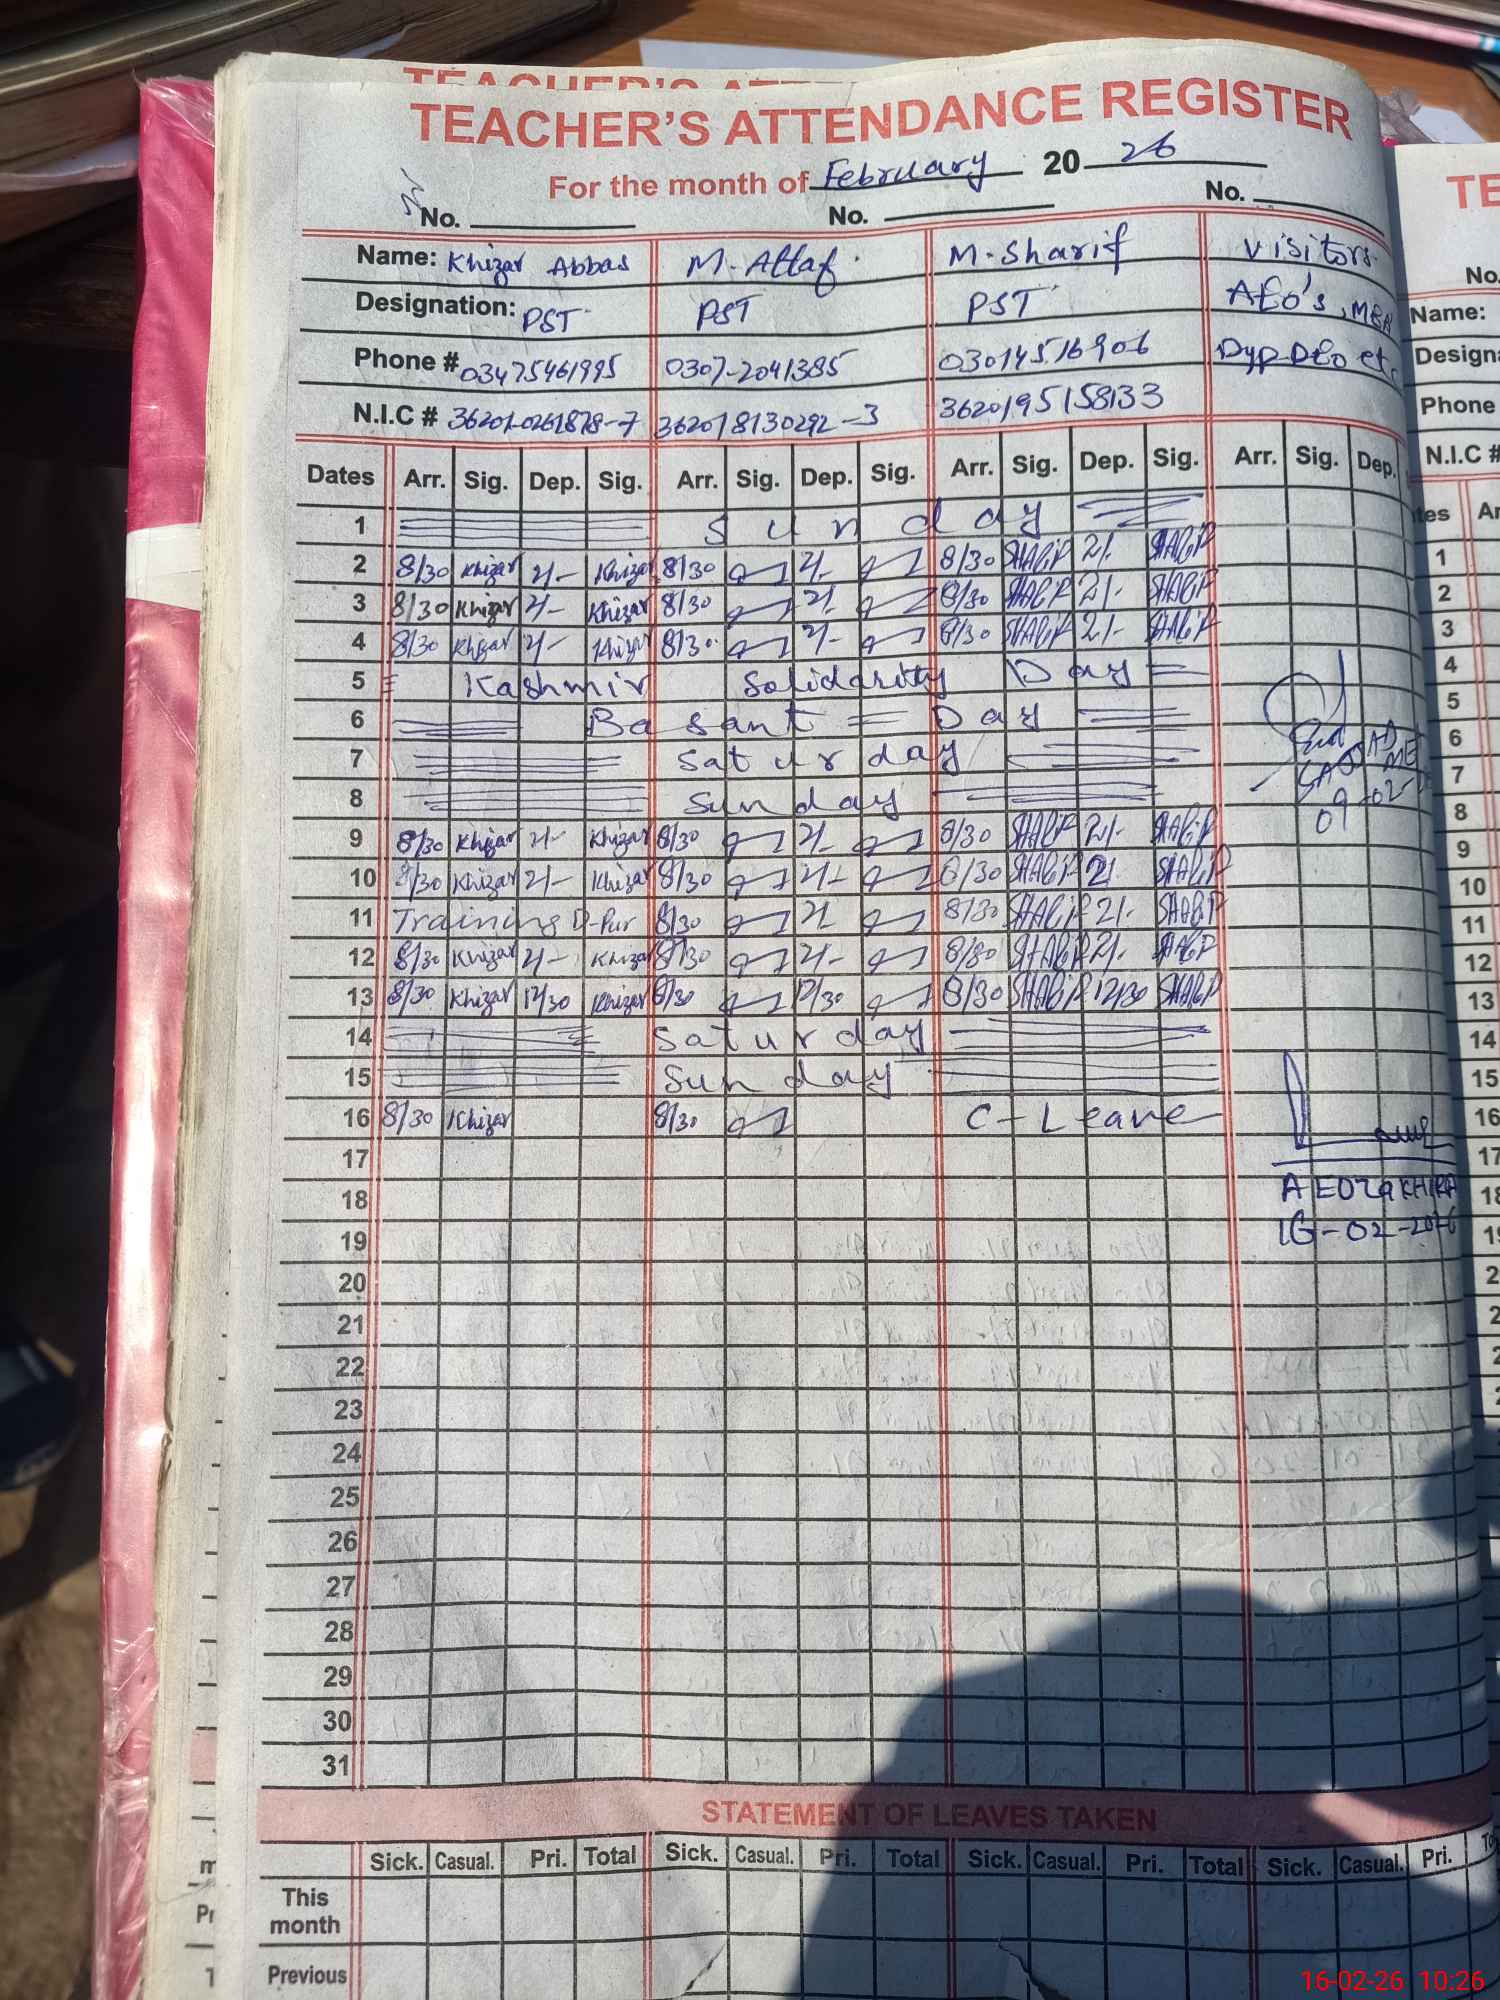 TEACHER'S ATTENDANCE REGISTER
For the month of February 2026
No. No. No.
Name: Khizar Abbas M. Altaf M. Sharif Visitors
Designation: PST PST PST AEO's, MEA
Phone # 03475461995 0307-2041385 03014516906 Dyp DEO etc
N.I.C # 36201-0261878-7 36201 8130292-3 3620195158133
Dates Arr. Sig. Dep. Sig. Arr. Sig. Dep. Sig. Arr. Sig. Dep. Sig. Arr. Sig. Dep.
1 Sunday
2 8/30 Khizar 2/- Khizar 8/30 2/- 8/30 2/-
3 8/30 Khizar 2/- Khizar 8/30 2/- 8/30 2/-
4 8/30 Khizar 2/- Khizar 8/30 2/- 8/30 2/-
5 Kashmir Solidarity Day
6 Basant = Day
7 Saturday
8 Sunday
09-02-
9 8/30 Khizar 2/- Khizar 8/30 2/- 8/30 2/-
10 8/30 Khizar 2/- Khizar 8/30 2/- 8/30 2/-
11 Training D-Pur 8/30 2/- 8/30 2/-
12 8/30 Khizar 2/- Khizar 8/30 2/- 8/30 2/-
13 8/30 Khizar 12/30 Khizar 8/30 12/30 8/30 12/30
14 Saturday
15 Sunday
16 8/30 Khizar 8/30 C-Leave
17
18 AEO
19 16-02-2026
20
21
22
23
24
25
26
27
28
29
30
31
STATEMENT OF LEAVES TAKEN
Sick. Casual. Pri. Total Sick. Casual. Pri. Total Sick. Casual. Pri. Total Sick. Casual. Pri.
This month
Previous
TE
No.
Name:
Phone
N.I.C #
1
2
3
4
5
6
7
8
9
10
11
12
13
14
15
16
17
18
16-02-26 10:26